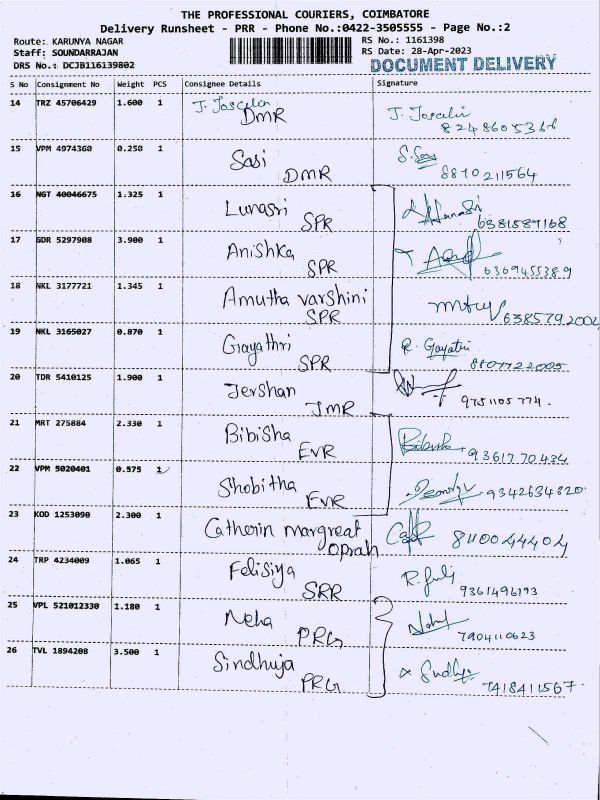 THE PROFESSIONAL COURIERS, COIMBATORE
Delivery Runsheet - PRR - Phone No.:0422-3505555 - Page No.:2
Route: KARUNYA NAGAR RS No.: 1161398
Staff: SOUNDARRAJAN RS Date: 28-Apr-2023
DRS No.: DCJB116139802 DOCUMENT DELIVERY
S No Consignment No Weight PCS Consignee Details Signature
14 TRZ 45706429 1.600 1 J. Joscelin J. Joscelin
DMR
15 VPM 4974360 0.250 1 Sasi
DMR 8870211564
16 NGT 40046675 1.325 1 Lunasri
SPR 6381589168
17 GDR 5297908 3.900 1 Anishka
SPR 6369455389
18 NKL 3177721 1.345 1 Amutha varshini
SPR 6385792002
19 NKL 3165027 0.870 1 Gayathri R. Gayatri
SPR
20 TDR 5410125 1.900 1 Jershan
JMR 9751105774.
21 MRT 275884 2.330 1 Bibisha
EVR 9361770434
22 VPM 5020401 0.575 1 Shobitha
EVR 9342634820
23 KOD 1253090 2.300 1 Catherin margreat
Oprah 8110044404
24 TRP 4234009 1.065 1 Felisiya
SRR 9361496193
25 VPL 521012330 1.180 1 Neha
PRG 7904110623
26 TVL 1894208 3.500 1 Sindhuja
PRG 7418411567